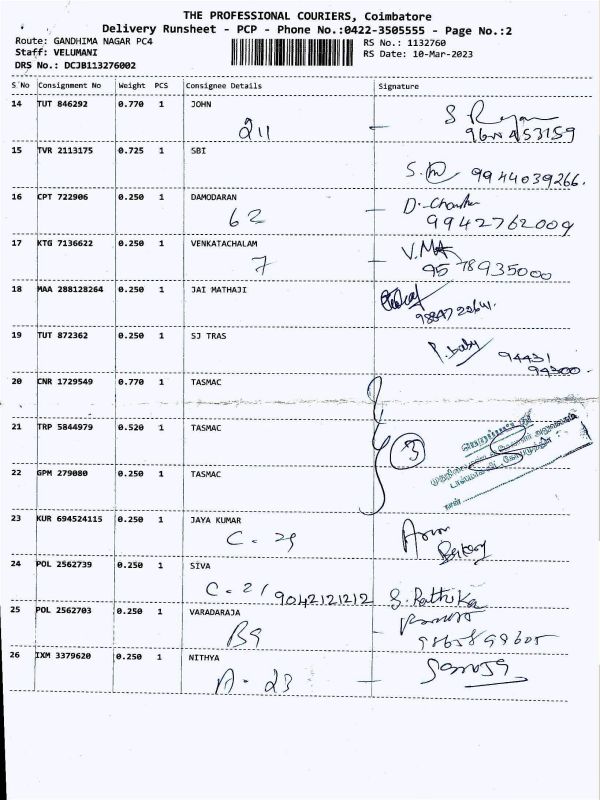 THE PROFESSIONAL COURIERS, Coimbatore
Delivery Runsheet - PCP - Phone No.:0422-3505555 - Page No.:2
Route: GANDHIMA NAGAR PC4
RS No.: 1132760
Staff: VELUMANI
RS Date: 10-Mar-2023
DRS No.: DCJB113276002
S No Consignment No Weight PCS Consignee Details Signature
14 TUT 846292 0.770 1 JOHN
211
15 TVR 2113175 0.725 1 SBI
9944039266.
16 CPT 722906 0.250 1 DAMODARAN
62
9942762009
17 KTG 7136622 0.250 1 VENKATACHALAM
7
9578935000
18 MAA 288128264 0.250 1 JAI MATHAJI
19 TUT 872362 0.250 1 SJ TRAS
P. baby 94431
94300
20 CNR 1729549 0.770 1 TASMAC
21 TRP 5844979 0.520 1 TASMAC
3
22 GPM 279080 0.250 1 TASMAC
நாள்
23 KUR 694524115 0.250 1 JAYA KUMAR
C - 29
24 POL 2562739 0.250 1 SIVA
C - 21 9042121212 S. Rathika
25 POL 2562703 0.250 1 VARADARAJA
B9
26 IXM 3379620 0.250 1 NITHYA
A - 23